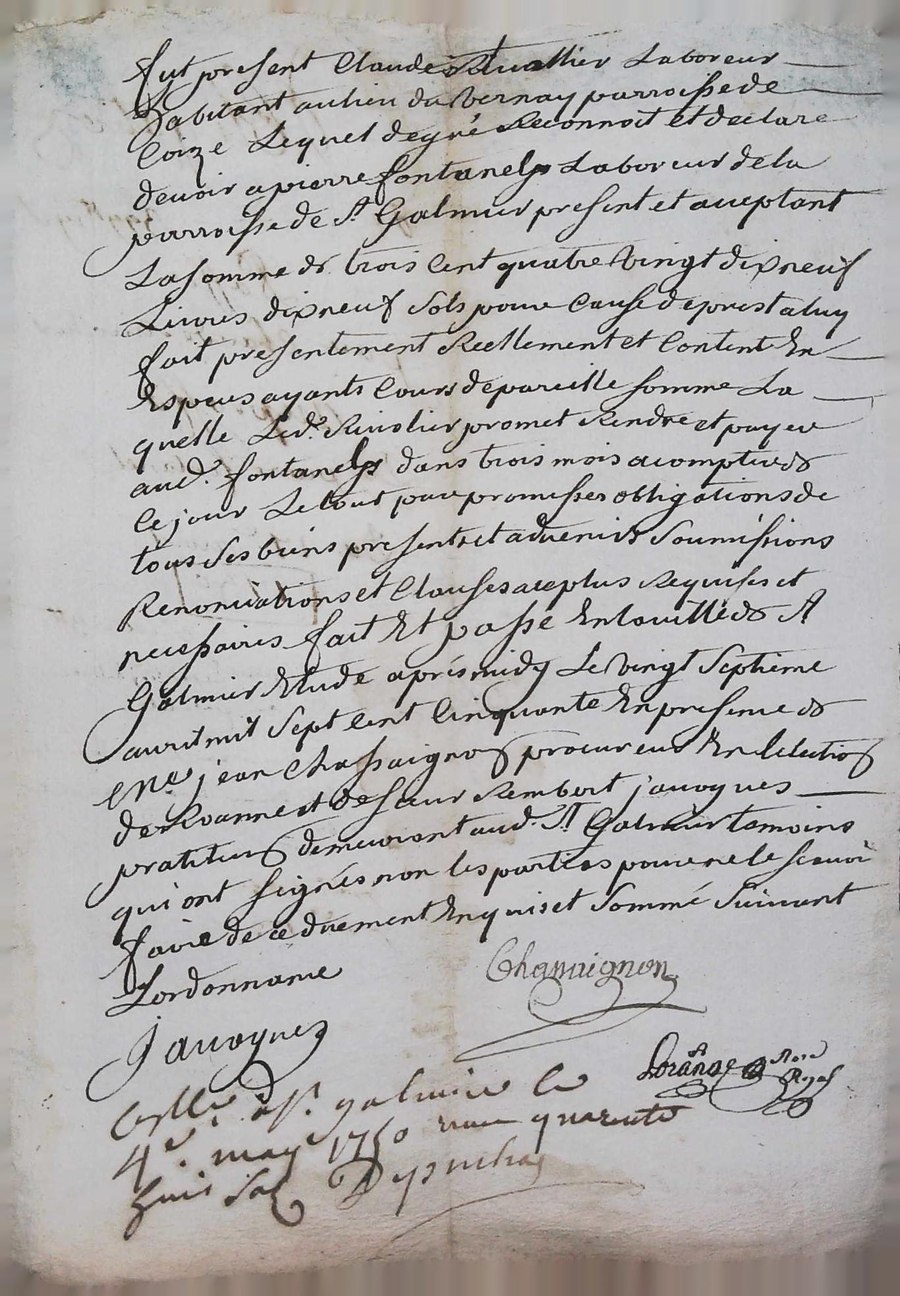 fut present Claude Ruallier Laboreur
habitant au lieu du Vernay parroisse de
Coize Lequel de gré Reconnoit et declare
devoir a pierre fontanelps Laboreur de la
parroisse de St. Galmier present et aceptant
La somme de trois Cent quatre Vingt dixneuf
Livres dixneuf sols pour Cause de prest a luy
fait presentement Reellement et Content En
Especes ayants Cours de pareille somme La
quelle Led. promet Rendre et payer
aud. fontanelps dans trois mois a compter de
Ce jour Le tout par promesses obligations de
tous Ses biens presents et advenir Soumissions
Renonciations et Clauses a ce plus Requises et
necessaires fait Et passé En la ville de St
Galmier Etude après midy Le Vingt Septième
avril mil Sept Cent Cinquante En presence de
Me. jean Chassaignon procureur En Lelection
de Roanne et de Sieur Rembert javognes
praticien demeurant aud. St. Galmier temoins
qui ont Signés non les parties pour ne le scavoir
faire de ce duement Enquis et Sommé Suivant
Lordonnance
Chassaignon
javognes
Re Royal
Cellé à St. galmier le
4e. may 1750 quarente
huit sols